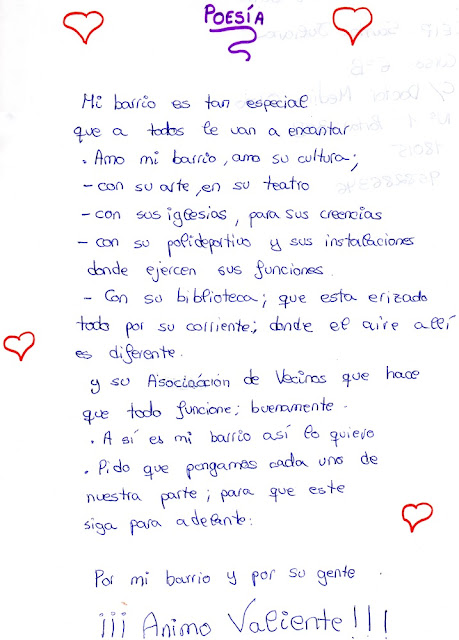 POESÍA
Mi barrio es tan especial
que a todos le van a encantar
. Amo mi barrio, amo su cultura;
- con su arte, en su teatro
- con sus iglesias, para sus creencias
- con su polideportivo y sus instalaciones
donde ejercen sus funciones.
- Con su biblioteca; que esta erizado
todo por su corriente; donde el aire allí
es diferente.
y su Asociaición de Vecinos que hace
que todo funcione; buenamente.
. A sí es mi barrio así lo quiero
. Pido que pongamos cada uno de
nuestra parte; para que este
siga para adelante.
Por mi barrio y por su gente.
¡¡¡ Animo Valiente!!!